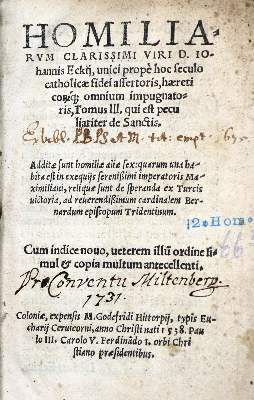 HOMILIA-
RVM CLARISSIMI VIRI D. IO-
hannis Eckij, unici propè hoc seculo
catholicæ fidei assertoris, hæreti
corūq́; omnium impugnato-
ris, Tomus III. qui est pecu
liariter de Sanctis.
Additæ sunt homiliæ aliæ sex: quarum una ha-
bita est in exequijs serenissimi imperatoris Ma-
ximiliani, reliquæ sunt de speranda ex Turcis
uictoria, ad reuerendissimum cardinalem Ber-
nardum episcopum Tridentinum.
Cum indice nouo, ueterem illū ordine si-
mul & copia multum antecellenti.
Pro Conventu Miltenberg.
1731.
Coloniæ, expensis M. Godefridi Hittorpij, typis Eu-
charij Ceruicorni, anno Christi nati 1538. Pau
lo III. Carolo V. Ferdinādo I. orbi Chri
stiano præsidentibus.